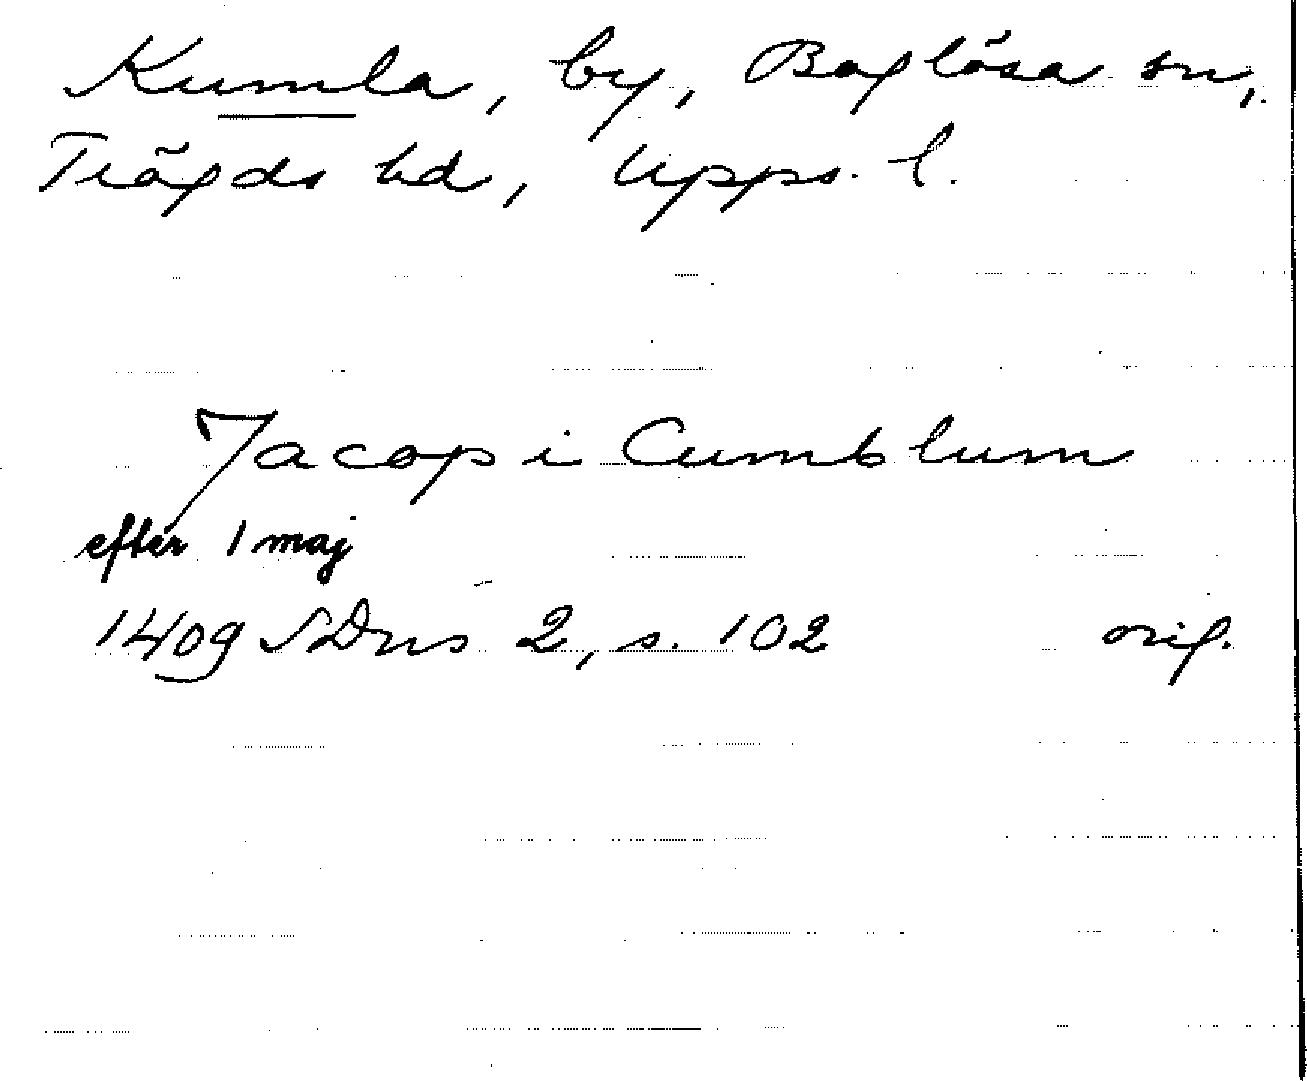 Kumla, by, Boglösa sn,
Trögds hd, Upps. l.
Jacop i Cumblum
efter 1 maj
1409 SDns 2, s. 102 orig.